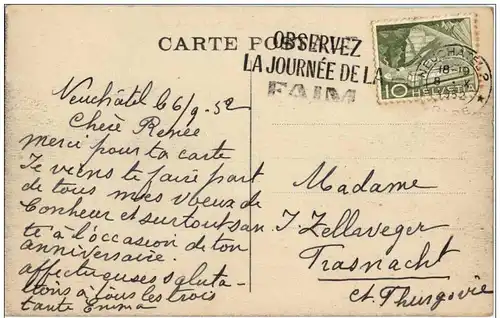 CARTE POSTALE
OBSERVEZ
LA JOURNÉE DE LA
FAIM
NEUCHATEL 2
18-19
10 HELVETIA
Neuchâtel 6/9-52
Chère Renée
merci pour ta carte
Je viens te faire part
de tous mes voeux de
bonheur et surtout san
té à l'occasion de ton
anniversaire.
affectueuses saluta-
tions à tous les trois
tante Emma
Madame
J Zellweger
Trasnacht
ct. Thurgovie